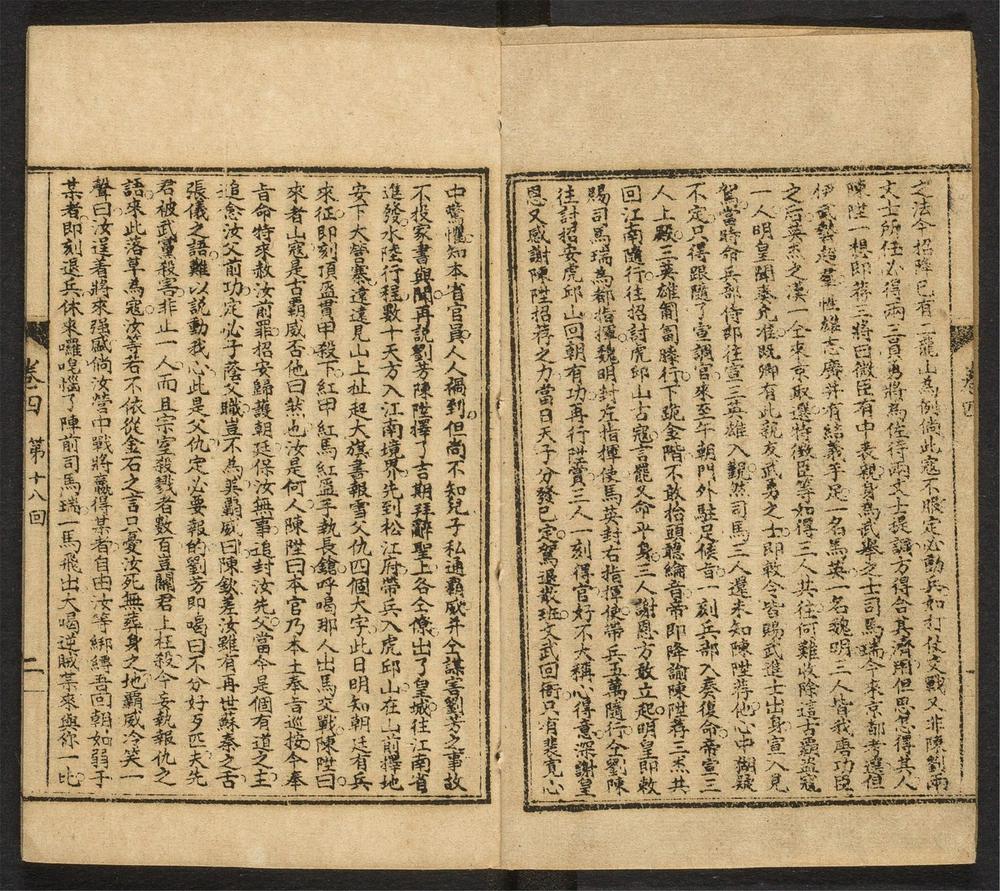 之法令招降已有二龍山為例倘此寇不服定必動兵如利仗交戰又非陳劉兩
文士所任必得兩三員勇將為佐行兩文士提調方得合其濟用但思忌得其人
陳陞一想即荐三將曰微臣有中表親身為武舉之士司馬瑞今來京都考選但
伊武藝超羣性繼志廣并有結義手足一名馬英一名魏明三人皆我唐功臣
之后英杰之漢一仝來京取選恃微臣等如得三人共往何難收除這古霸盜寇
一人明皇聞奏允准既卿有此親友武勇之士即敕令皆賜武進士出身宣入見
駕當時命兵部侍郎往宣三英雄入覲然司馬三人還未知陳陞荐他心中糊疑
不定只得跟隨了宣調官來至午朝門外駐足候旨一刻兵部入奏復命帝宣三
人上殿三英雄匍匐膝行下跪金階不敢抬頭聽綸音帝即降諭陳陞荐三杰共
回江南隨行往招討虎邱山古寇言罷又命平身三人謝恩方敢立起明皇即敕
賜司馬瑞為都指揮魏明封左指揮使馬英封右指揮使帶兵五萬隨行仝劉陳
往討招安虎邱山回朝有功再行陞賞三人一刻得官好不大稱心得意深謝皇
恩又感謝陳陞招荐之力當日天子分發已定駕退散班文武回衙只有裴寬心
中驚懼知本省官員人人禍到但尚不知兒子私通霸威并仝謀害劉芳之事故
不投家書與聞再說劉芳陳陞擇了吉期拜辭聖上各仝僚出了皇城往江南省
進發水陸行程數十天方入江南境界先到松江府帶兵入虎邱山在山前擇地
安下大營寨遠遠見山上扯起大旗書報雪父仇四個大字此日明知朝廷有兵
來征即刻頂盔貫甲殺下紅甲紅馬紅盔手執長鎗呼喝那人出馬交戰陳陞曰
來者山寇是古霸威否他曰然也汝是何人陳陞曰本官乃本土奉旨巡按今奉
旨命特來赦汝前罪招安歸護朝廷保汝無事追封汝先父當今是個有道之主
追念汝父前功定必子蔭父職豈不為美霸威曰陳欽差汝雖有再世蘇秦之舌
張儀之語難以說動我心此是父仇定必要報的劉芳即喝曰不分好歹匹夫先
君被武黨殺害非止一人而且宗室殺戮者數百豈關君上枉殺今妄執報仇之
語來此落草為寇汝等若不依從金石之言只憂汝死無葬身之地霸威冷笑一
聲曰汝逞者將來强威倘汝營中戰將贏得某者自由汝等綁縛吾回朝如弱于
某者即刻退兵休來囉唣惱了陣前司馬瑞一馬飛出大喝逆賊某來與你一比
卷四
第十八回
二
卷四